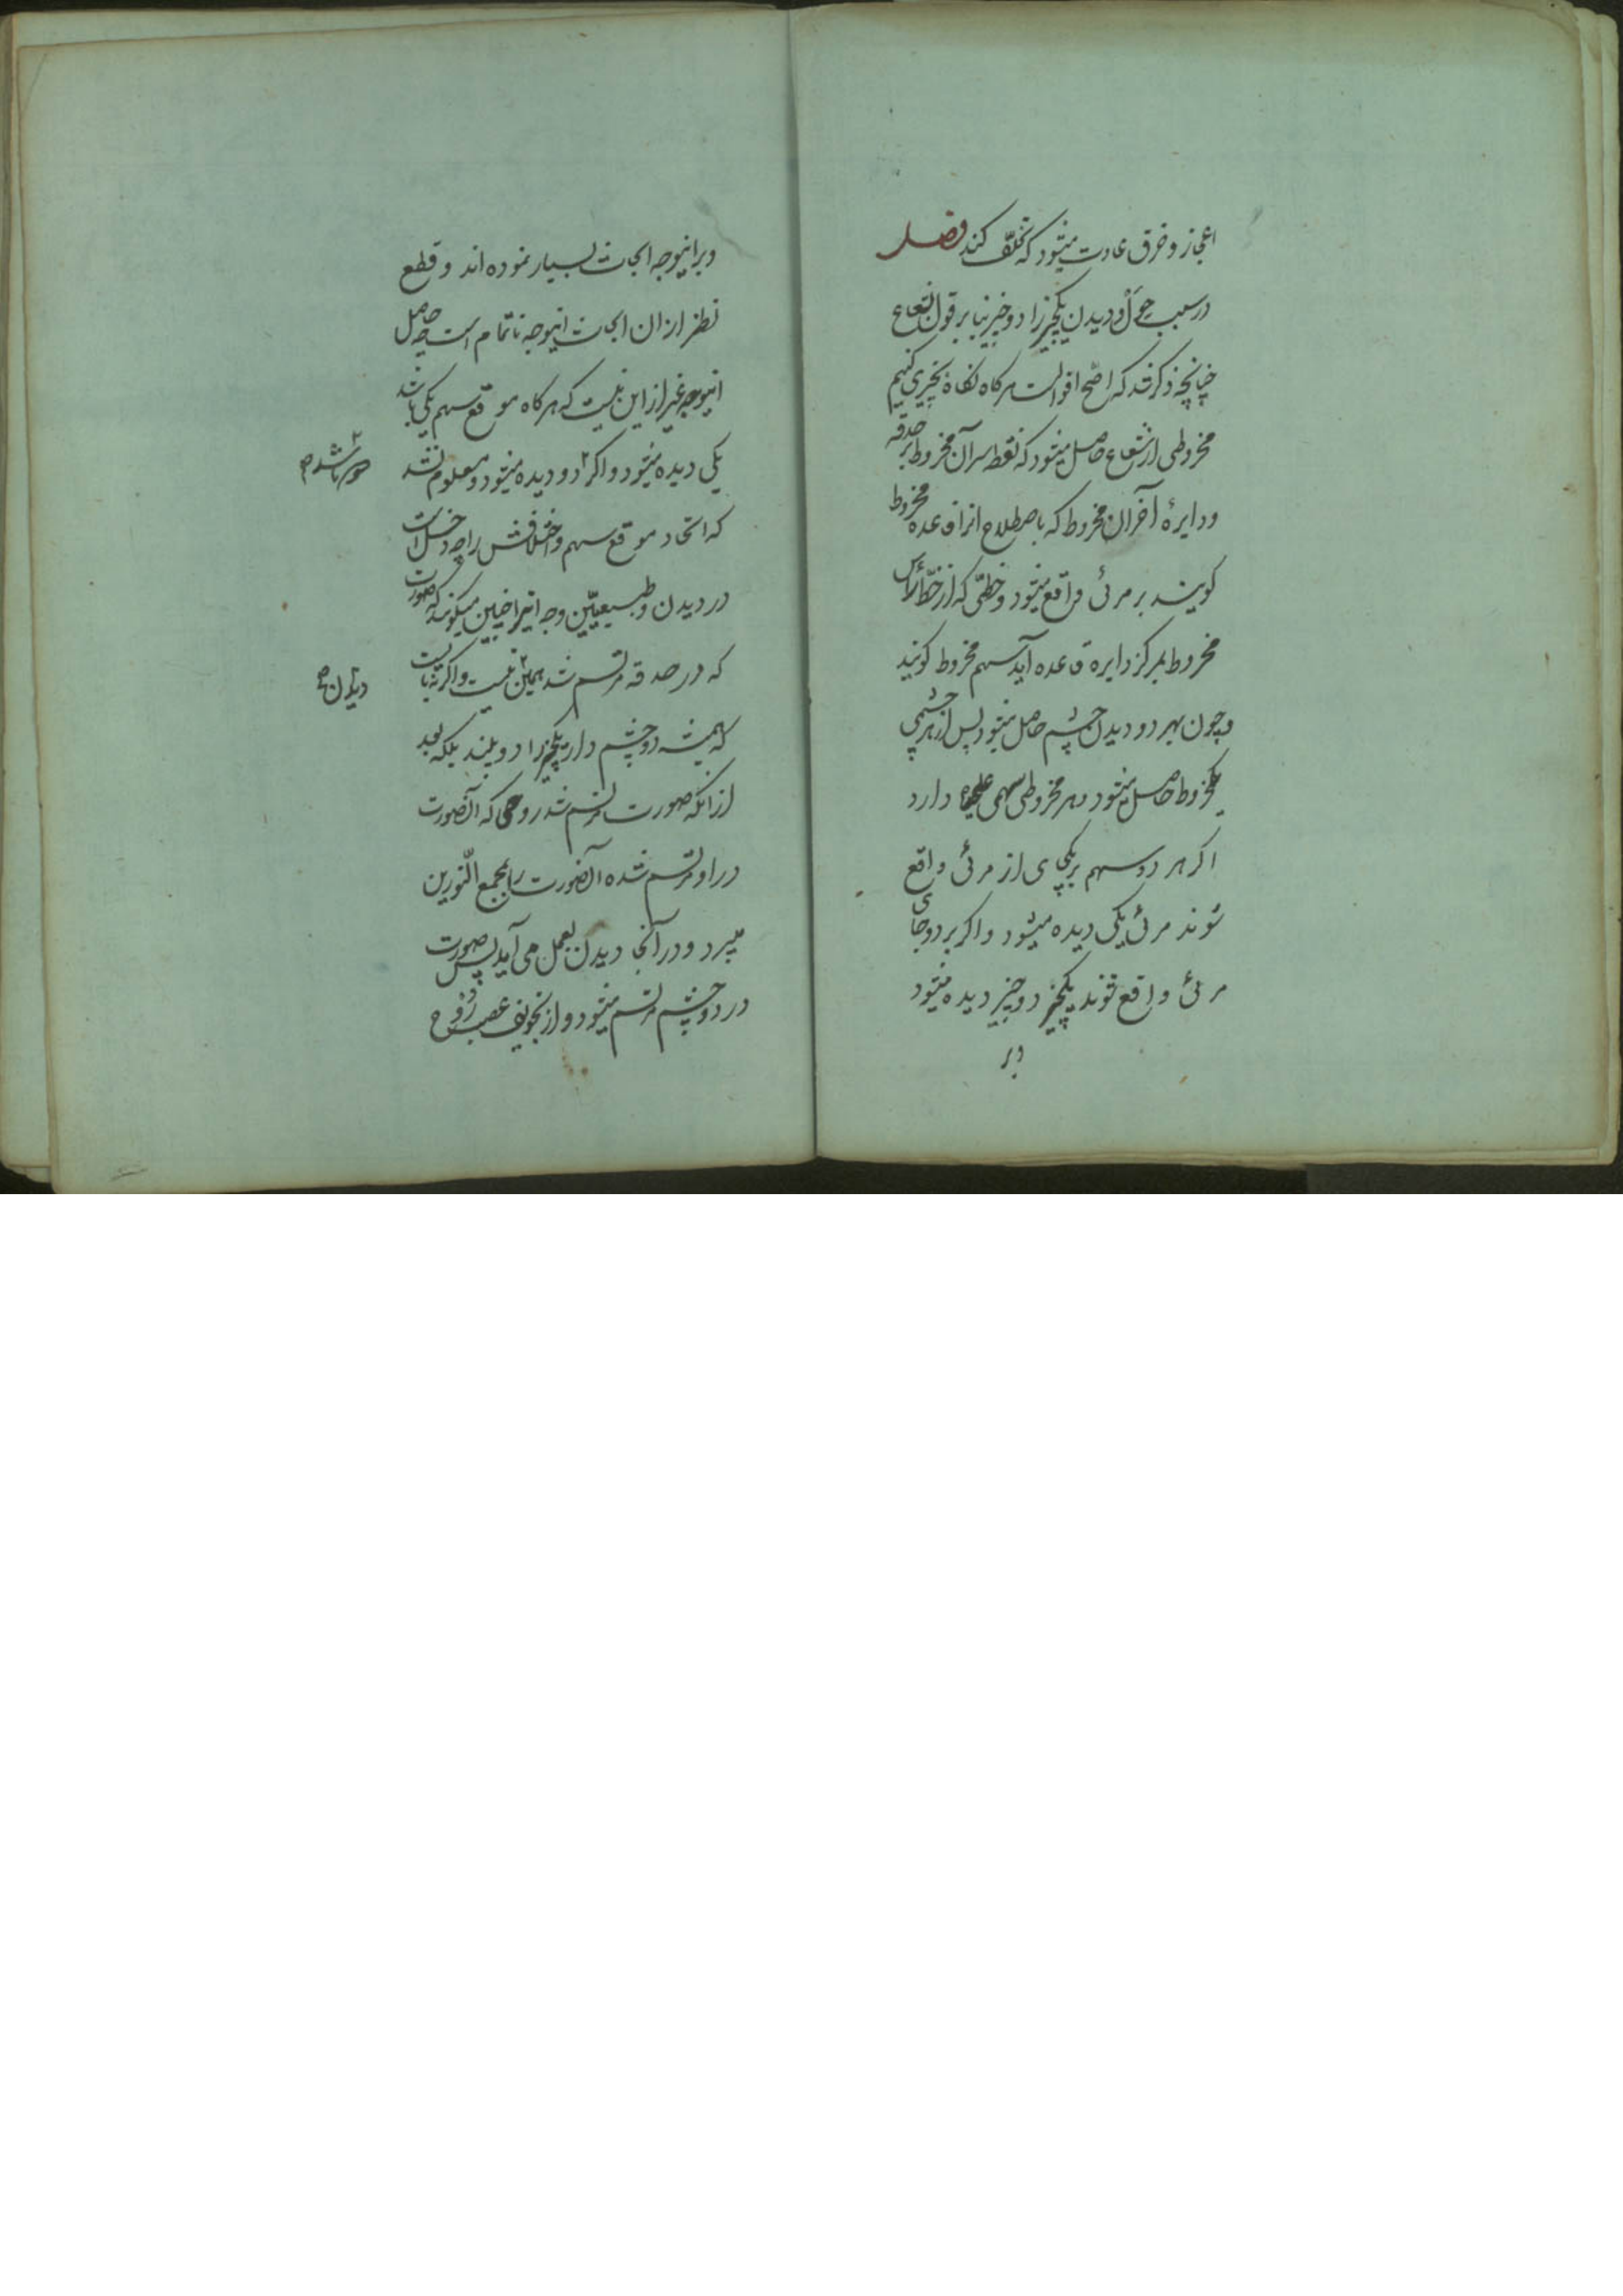 اعجاز و خرق عادت میشود که تخلف کند فصل
در سبب حول و دیدن یکچیز را دو چیز بنا بر قول شعاع
چنانچه ذکر شد که اصح اقوالست هرکاه نکاه بچیزی کنیم
مخروطی از شعاع حاصل میشود که نقطه سر آن مخروط بر حدقه
و دایرهٔ آخر آن مخروط که باصطلاح انرا قاعده مخروط
کویند بر مرئی واقع میشود و خطی که از نقطه رأس
مخروط بمرکز دایره قاعده آید سهم مخروط کویند
و چون بهر دو دیدن چشم حاصل میشود پس از هر چشمی
یکمخروط حاصل میشود و هر مخروطی سهمی علیحده دارد
اکر هر دو سهم بر یکجای از مرئی واقع
شوند مرئی یکی دیده میشود و اکر بر دو جای
مرئی واقع شوند یکچیز دو چیز دیده میشود
و بر
و بر اینوجه ابحاث بسیار نموده اند و قطع
نظر از ان ابحاث اینوجه ناتمام است چه حاصل
اینوجه غیر از این نیست که هرکاه موقع سهم یکی باشد
یکی دیده میشود و اکر ۲ دو دیده میشود و معلوم نشد
که اتحاد موقع سهم و اختلافش را چه دخل است
در دیدن و طبیعیین وجه انرا چنین میکویند که صورت
که در حدقه مرتسم شد همین ۲ نیست و اکر نه بایست
که همیشه دو چشم دار یکچیز را دو بیند بلکه بعد
از انکه صورت مرتسم شد روحی که آنصورت
در او مرتسم شده آنصورت را بمجمع النورین
میبرد و در آنجا دیدن بعمل می آید پس صورت
در دو چشم مرتسم میشود و از تجویف عصب دو روح
۲ دو باشد صح
دیدن صح